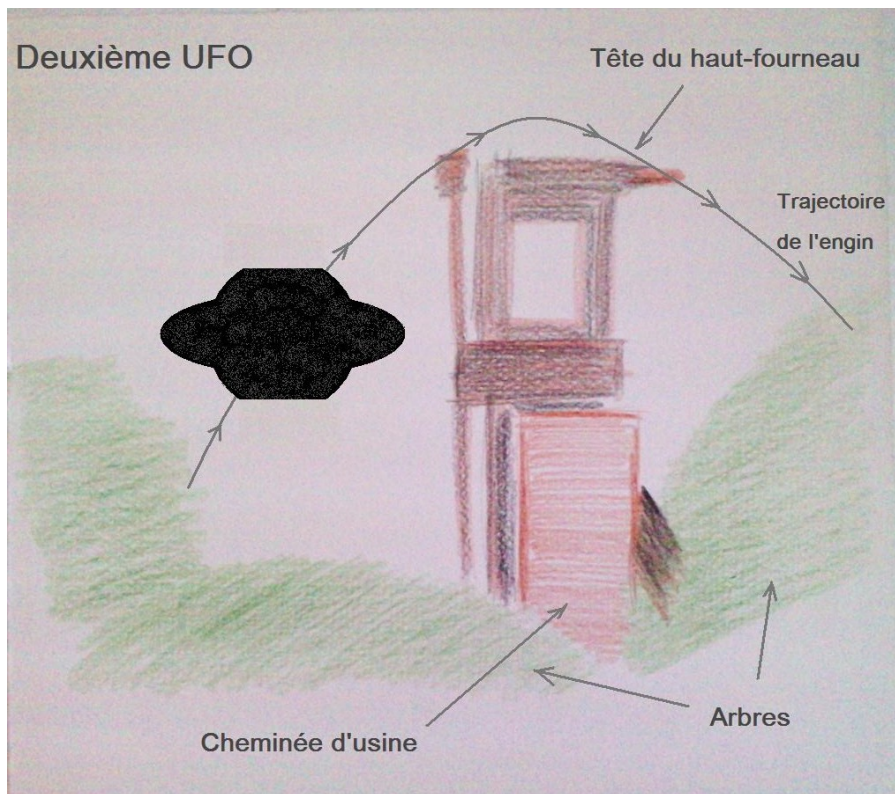 Deuxième UFO
Tête du haut-fourneau
Trajectoire
de l'engin
Arbres
Cheminée d'usine